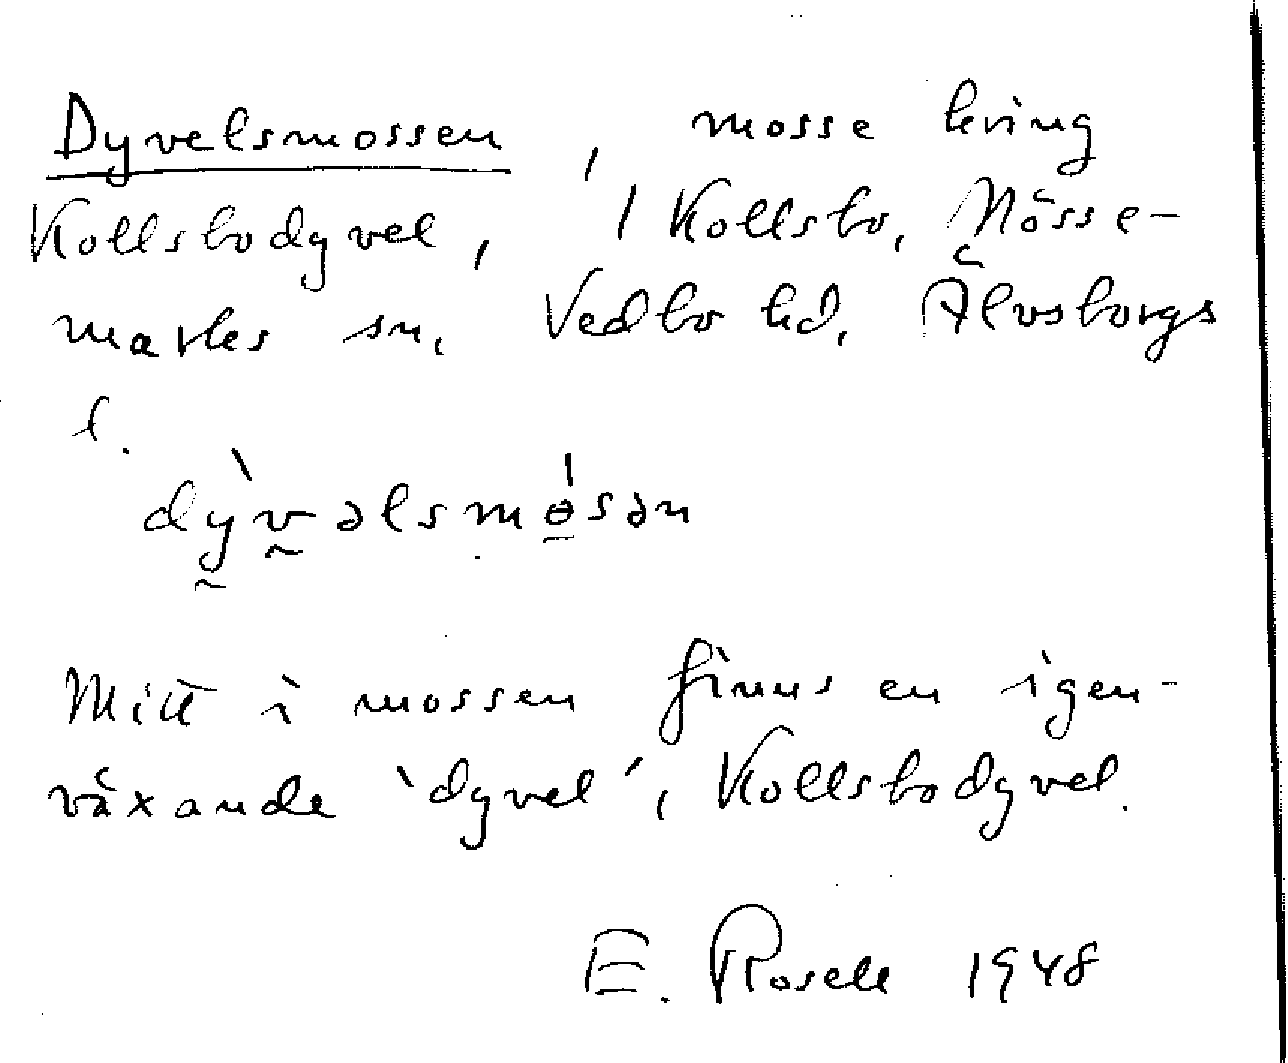 Dyvelsmossen, mosse kring
Kollsbodyvel, / Kollsbo, Nösse-
marks sn, Vedbo hd, Älvsborgs
l.
dỳvəlsmɵ́sən
Mitt i mossen finns en igen-
växande 'dyvel', Kollsbodyvel.
E. Rosell 1948